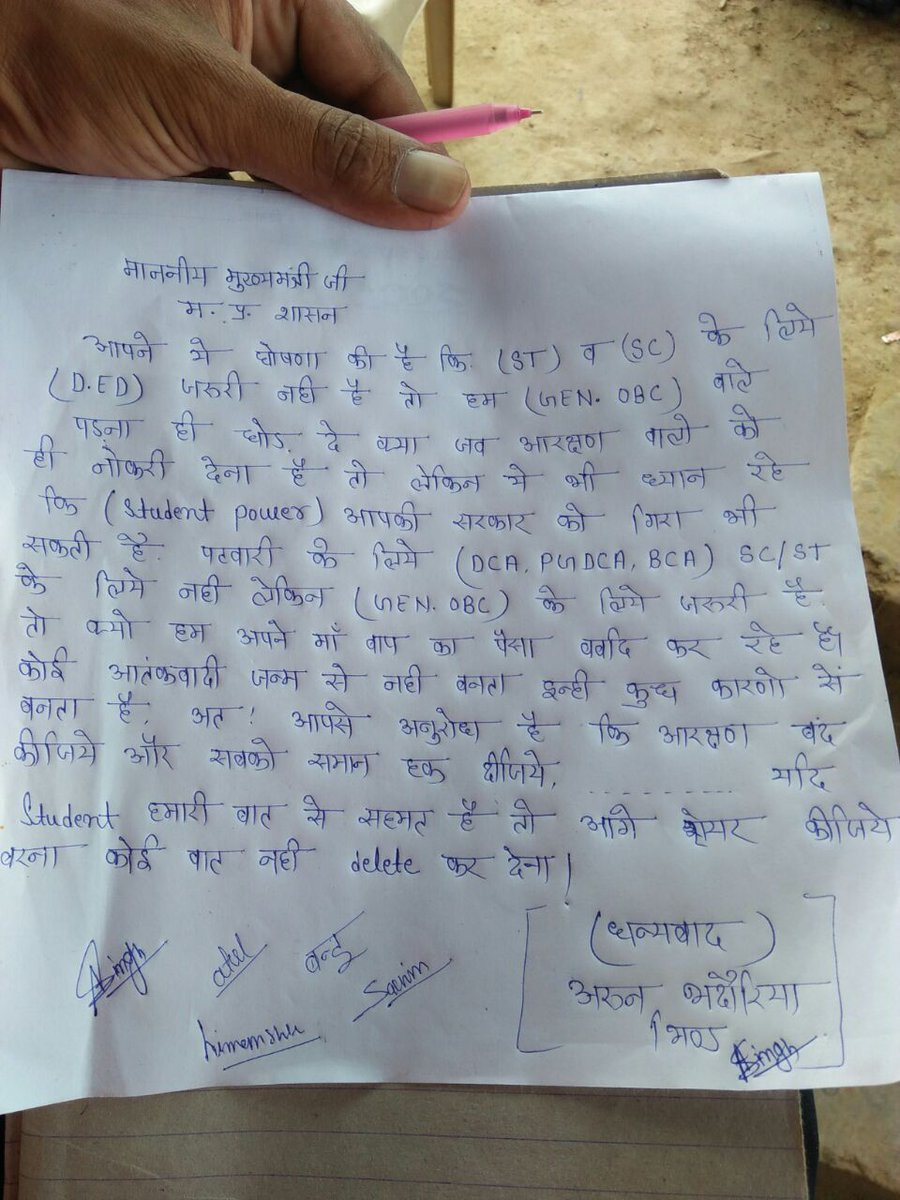 माननीय मुख्यमंत्री जी
म. प्र. शासन
आपने ये घोषणा की है कि (ST) व (SC) के लिये
(D.ED) जरुरी नही है तो हम (GEN. OBC) वाले
पड़ना ही छोड़ दे क्या जब आरक्षण वालो को
ही नोकरी देना है तो लेकिन ये भी ध्यान रहे
कि (Student power) आपकी सरकार को गिरा भी
सकती है. पटवारी के लिये (DCA, PGDCA, BCA) SC/ST
के लिये नही लेकिन (GEN. OBC) के लिये जरुरी है.
तो क्यो हम अपने माँ बाप का पैसा बर्बाद कर रहे है।
कोई आतंकवादी जन्म से नही बनता इन्ही कुछ कारणो से
बनता है. अत! आपसे अनुरोध है कि आरक्षण बंद
कीजिये और सबको समान हक दीजिये. .............. यदि
Student हमारी बात से सहमत है तो आगे शेयर कीजिये
वरना कोई बात नही delete कर देना।
(धन्यवाद)
अरुन भदौरिया
भिण्ड
Singh
Singh
atul
Sachin